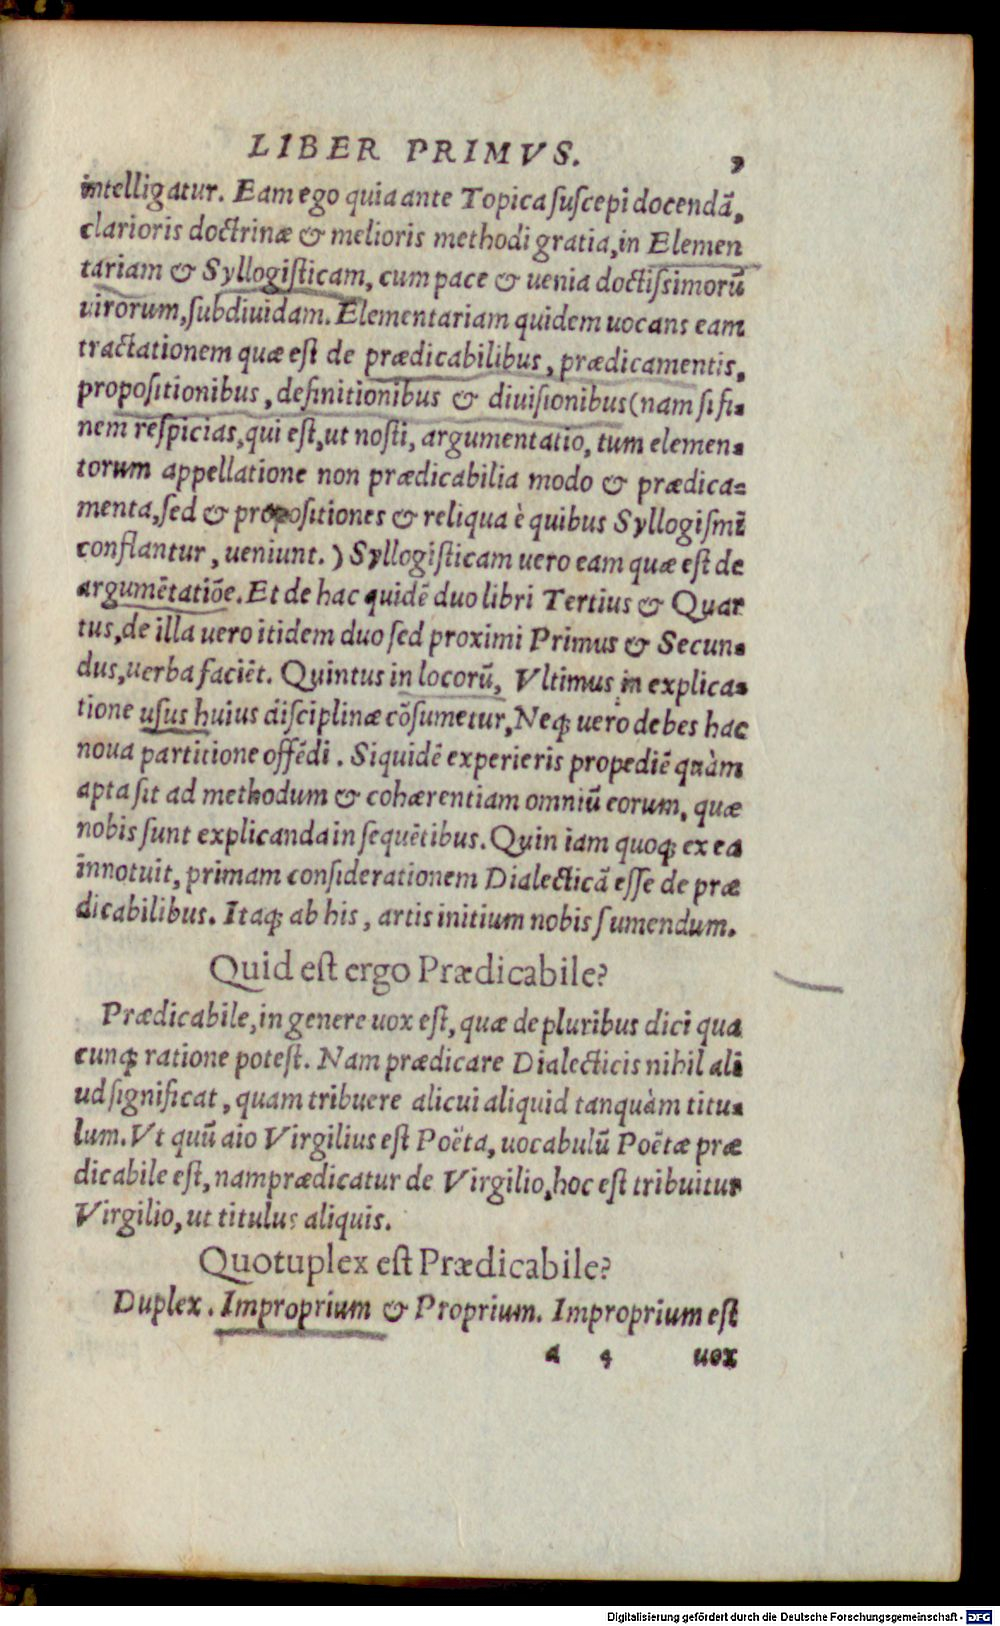 LIBER PRIMVS.
intelligatur. Eam ego quia ante Topica ſuſcepi docendā,
clarioris doctrinæ & melioris methodi gratia, in Elemen
tariam & Syllogiſticam, cum pace & uenia doctiſsimorū
virorum, ſubdiuidam. Elementariam quidem uocans eam
tractationem quæ eſt de prædicabilibus, prædicamentis,
propoſitionibus, definitionibus & diuiſionibus (nam ſi fi-
nem reſpicias, qui eſt, ut noſti, argumentatio, tum elemen-
torum appellatione non prædicabilia modo & prædica-
menta, ſed & propoſitiones & reliqua è quibus Syllogiſmi
conflantur, ueniunt.) Syllogiſticam uero eam quæ eſt de
argumētatiōe. Et de hac quidē duo libri Tertius & Quar
tus, de illa uero itidem duo ſed proximi Primus & Secun-
dus, uerba faciēt. Quintus in locorū, Vltimus in explica-
tione uſus huius diſciplinæ cōſumetur, Neqꝫ uero debes hac
noua partitione offēdi. Siquidē experieris propediē quàm
apta ſit ad methodum & cohærentiam omniū eorum, quæ
nobis ſunt explicanda in ſequētibus. Quin iam quoqꝫ ex ea
innotuit, primam conſiderationem Dialecticā eſſe de præ
dicabilibus. Itaqꝫ ab his, artis initium nobis ſumendum.
Quid eſt ergo Prædicabile?
Prædicabile, in genere uox eſt, quæ de pluribus dici qua
cunqꝫ ratione poteſt. Nam prædicare Dialecticis nihil ali
ud ſignificat, quam tribuere alicui aliquid tanquàm titu-
lum. Vt quū aio Virgilius eſt Poëta, uocabulū Poëtæ præ
dicabile eſt, nam prædicatur de Virgilio, hoc eſt tribuitur
Virgilio, ut titulus aliquis.
Quotuplex eſt Prædicabile?
Duplex. Improprium & Proprium. Improprium eſt
a 4 uox
Digitalisierung gefördert durch die Deutsche Forschungsgemeinschaft - DFG